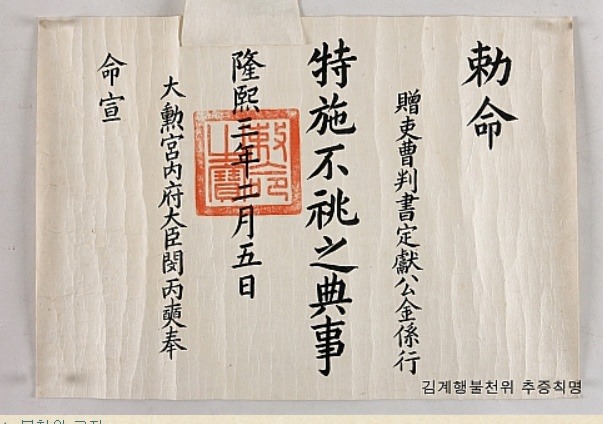 勅命
贈吏曹判書定獻公金係行
特施不祧之典事
隆熙三年二月五日
大勳宮內府大臣閔丙奭奉
命宣
勅命之寶
김계행불천위 추증칙명